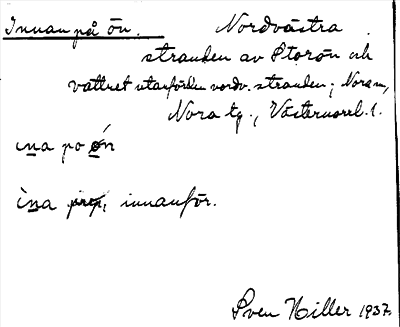 Innan på ön. Nordvästra
stranden av Storön och
vattnet utanför den nordv. stranden; Nora sn,
Nora tg., Västernorrl. l.
ina po ón
ìna prep. innanför.
Sven Hiller 1937.